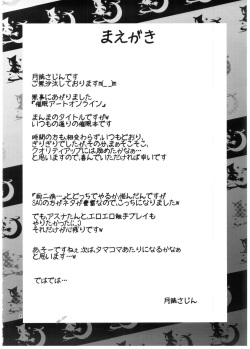 まえがき
月読さじんです
ご無沙汰しておりますm(_ _)m
無事にあがりました
『催眠アートオンライン』
まんまのタイトルですがw
いつもの通りの催眠本です
時間の方も、相変わらず、いつもどおり、
ぎりぎりでしたが、その分、まぁそこそこ、
クオリティアップには、励めたかなぁ…
と思いますので、喜んでいただければ幸いです
とどっちでやるか、悩んだんですが
SAOの方がネタが豊富なので、こっちになりました
でも、アスナたんと、エロエロ触手プレイも
やりたかった(;_;)
それだけが心残りです
あ、そーですねぇ 次は、タマコマあたりになるかなぁ
と思います…w
ではでは…
月読さじん